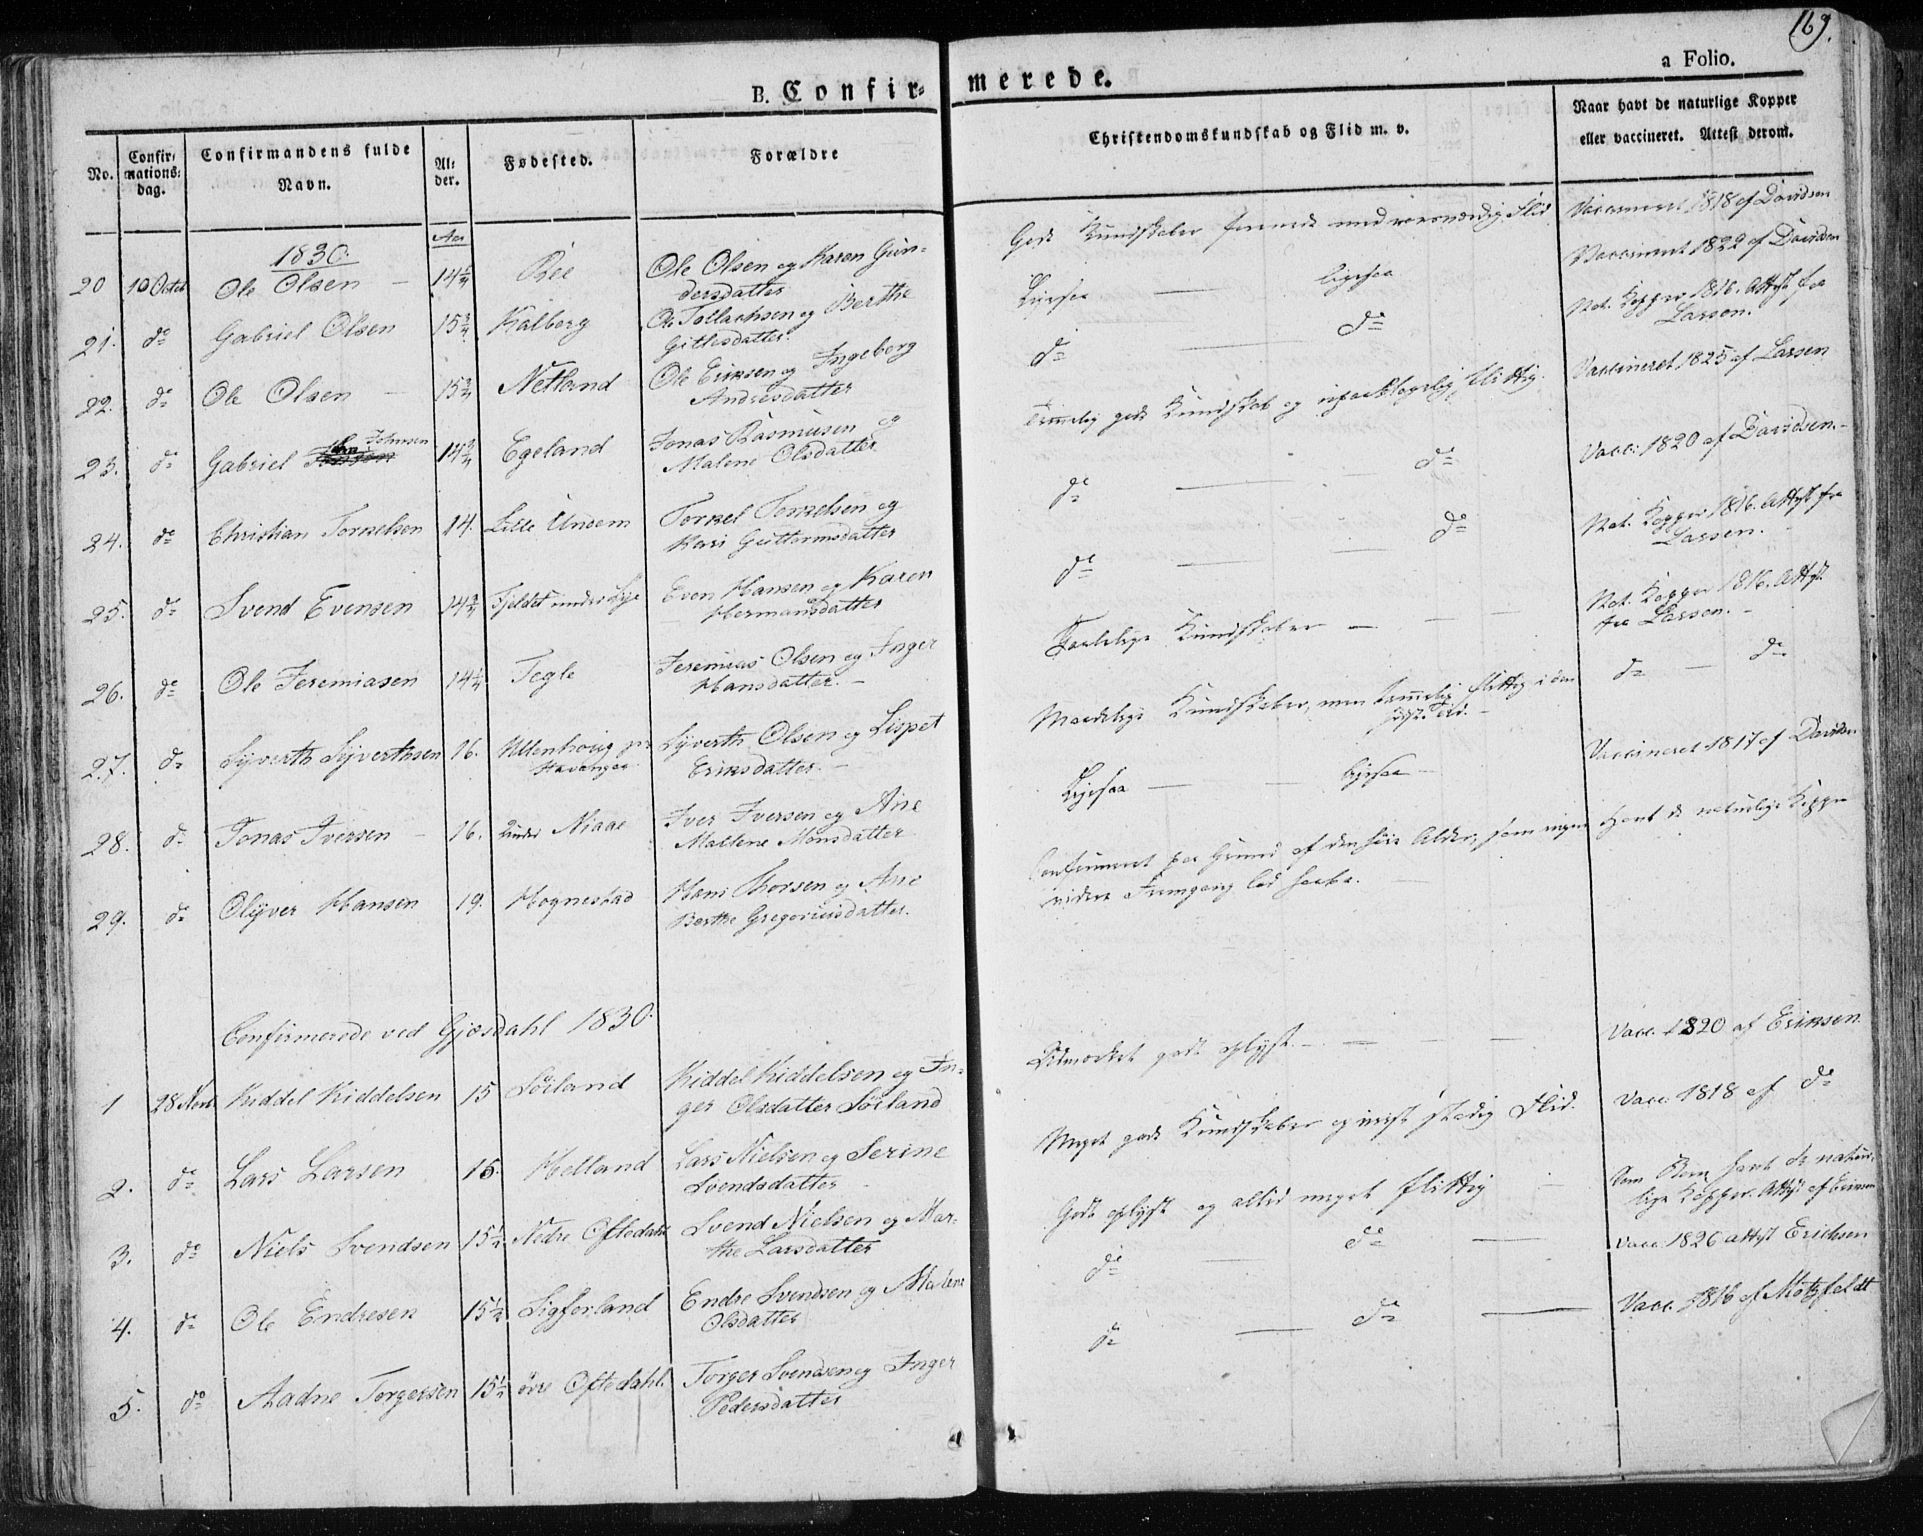 169.
a Folio.
B. Confir- merede.
No.
Confir-
mations-
dag.
Confirmandens fulde
Navn.
Al-
der.
Fødested.
Forældre
Christendomskundskab og Flid m. v.
Naar havt de naturlige Kopper
eller vaccineret. Attest derom.
Aar
1830.
20 10 Octob Ole Olsen 14 Ree Ole Olsen og Karen Gun-
dersdatter
Gode Kundskaber forenede med roesværdig Flid Vaccineret 1818 af Davidsen
21. do Gabriel Olsen 15 3/4 Kalberg Ole Tollachsen og Berthe
Gitlesdatter.
Ligesaa — ligesaa Vaccineret 1822 af Davidsen
22. do Ole Olsen 15 3/4 Netland Ole Eriksen og Ingeborg
Andresdatter
do — do Nat. Kopper 1816. Attest fra
Larsen.
23. do Gabriel Johnsen 14 3/4 Egeland Jonas Rasmusen og
Malene Olsdatter
Temmelig gode Kundskab og upaaklagelig flittig. Vaccineret 1825 af Larsen
24. do Christian Torkelsen 14. Litle Undem Torkel Torkelsen og
Kari Guttormsdatter
do — do Vacc. 1820 af Davidsen.
25. do Svend Evensen 14 3/4 Fjeldet under Lye Even Hansen og Karen
Hermansdatter
do — do Nat. Kopper 1816. Attest fra
Larsen.
26. do Ole Jeremiasen 14 1/4 Tegle Jeremias Olsen og Inger
Hansdatter.
Taalelige Kundskaber — — — Nat. Kopper 1816. Attest
fra Larsen.
27. do Syverth Syverthsen 16. Ullenhoug
Stavanger
Syverth Olsen og Lispet
Eriksdatter.
Maadelige Kundskaber, men temmelig flittig i den
sidste Tid.
do — do
28. do Jonas Iversen 16. under Niaae Iver Iversen og Ane
Mallene Monsdatter
Ligesaa — ligesaa — Vaccineret 1817 af Davidsen
29. do Olyver Hansen 19. Hognestad Hans Thorsen og Ane
Berthe Gregoriusdatter.
Confirmeret paa Grund af den høie Alder, som ingen havt de naturlige Kopper
videre Fremgang lod haabe.
Confirmerede ved Gjesdahl 1830.
1 28 Nov Kiddel Kiddelsen 15 Søiland Kiddel Kiddelsen og In-
ger Olsdatter Søiland
Udmærket godt oplyst — — — Vacc. 1820 af Eriksen
2. do Lars Larsen 15. Helland Lars Nielsen og Serine
Svendsdatter
Meget gode Kundskaber og viist stadig Flid. Vacc 1818 af do
3. do Niels Svendsen 15 1/2 Nedre Oftedahl Svend Nielsen og Mar-
the Larsdatter
Godt oplyst og altid meget flittig Som Barn havt de natur-
lige Kopper. Attest af
4. do Ole Endresen 15 1/2 Sigforland Endre Svendsen og Malene
Olsdatter
do — do — Vacc. 1826 attest Erichsen
5. do Aadne Torgersen 15 1/2 øvre Oftedahl. Torger Svendsen og Inger
Pedersdatter
do — do — Vacc. 1816 af Motzfeldt